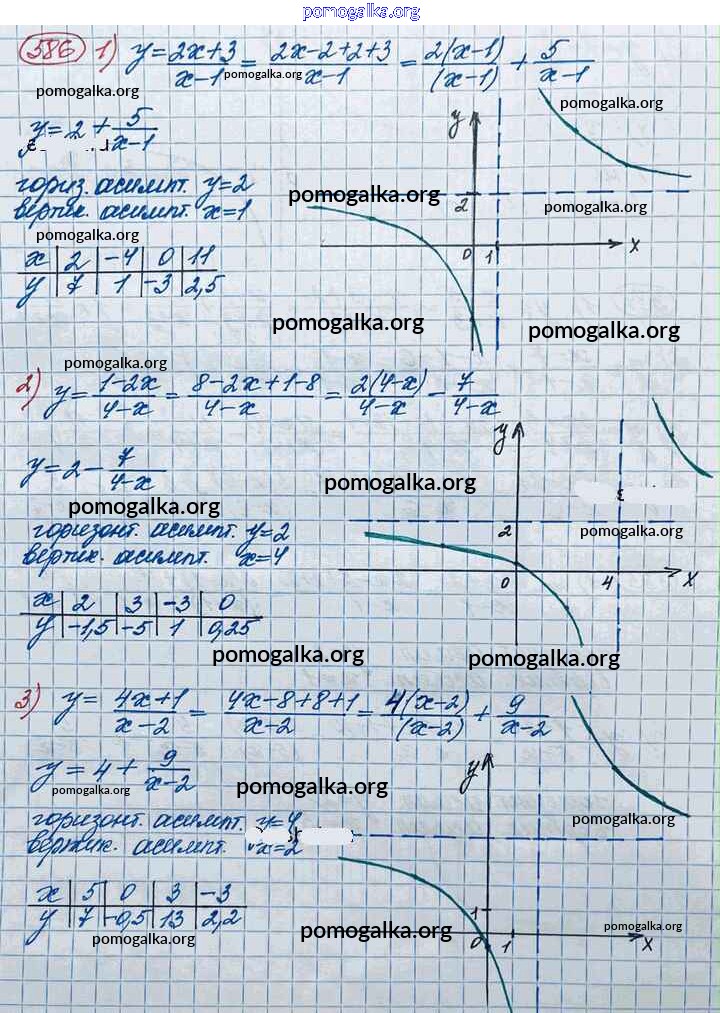 pomogalka.org
586 1) y = (2x+3)/(x-1) = (2x-2+2+3)/(x-1) = 2(x-1)/(x-1) + 5/(x-1)
pomogalka.org pomogalka.org
pomogalka.org
y = 2 + 5/(x-1)
y
гориз. асимпт. y=2
pomogalka.org
2
pomogalka.org
вертик. асимпт. x=1
pomogalka.org
0 1 x
x | 2 | -4 | 0 | 11
y | 7 | 1 | -3 | 2,5
pomogalka.org pomogalka.org
pomogalka.org
2) y = (1-2x)/(4-x) = (8-2x+1-8)/(4-x) = 2(4-x)/(4-x) - 7/(4-x)
y
y = 2 - 7/(4-x)
pomogalka.org
pomogalka.org
горизонт. асимпт. y=2
2
pomogalka.org
вертик. асимпт. x=4
0 4 x
x | 2 | 3 | -3 | 0
y | -1,5 | -5 | 1 | 0,25
pomogalka.org pomogalka.org
3) y = (4x+1)/(x-2) = (4x-8+8+1)/(x-2) = 4(x-2)/(x-2) + 9/(x-2)
y
y = 4 + 9/(x-2)
pomogalka.org pomogalka.org
горизонт. асимпт. y=4
pomogalka.org
вертик. асимпт. x=2
x | 5 | 0 | 3 | -3
y | 7 | -0,5 | 13 | 2,2
1
pomogalka.org pomogalka.org pomogalka.org
0 1 x